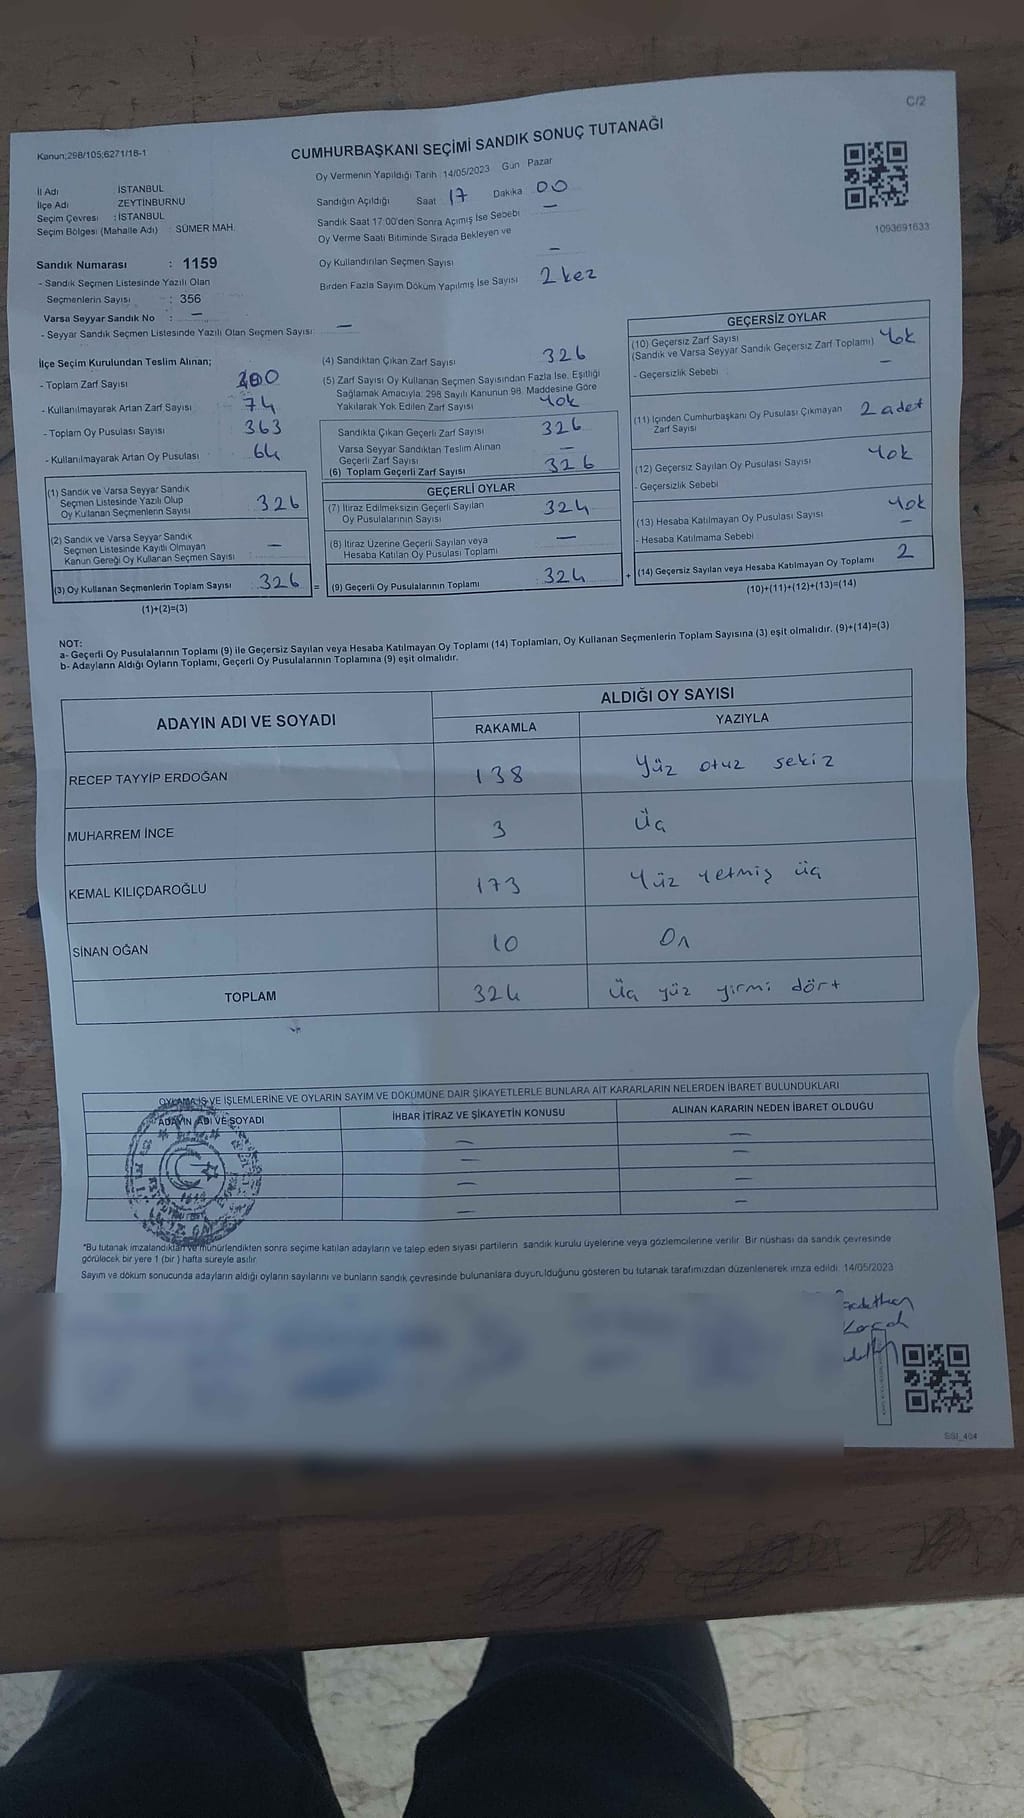 C/2
Kanun;298/105;6271/18-1
CUMHURBAŞKANI SEÇİMİ SANDIK SONUÇ TUTANAĞI
Oy Vermenin Yapıldığı Tarih 14/05/2023 Gün Pazar
İl Adı İSTANBUL
İlçe Adı ZEYTİNBURNU
Seçim Çevresi : İSTANBUL
Seçim Bölgesi (Mahalle Adı) : SÜMER MAH.
Sandığın Açıldığı Saat 17 Dakika 00
Sandık Saat 17:00'den Sonra Açımış İse Sebebi —
Oy Verme Saati Bitiminde Sırada Bekleyen ve
Oy Kullandırılan Seçmen Sayısı —
Birden Fazla Sayım Döküm Yapılmış İse Sayısı 2 kez
1093691633
Sandık Numarası : 1159
- Sandık Seçmen Listesinde Yazılı Olan
Seçmenlerin Sayısı : 356
Varsa Seyyar Sandık No : —
- Seyyar Sandık Seçmen Listesinde Yazılı Olan Seçmen Sayısı: —
İlçe Seçim Kurulundan Teslim Alınan;
- Toplam Zarf Sayısı
- Kullanılmayarak Artan Zarf Sayısı 74
- Toplam Oy Pusulası Sayısı 363
- Kullanılmayarak Artan Oy Pusulası 64
(1) Sandık ve Varsa Seyyar Sandık
Seçmen Listesinde Yazılı Olup
Oy Kullanan Seçmenlerin Sayısı 326
(2) Sandık ve Varsa Seyyar Sandık
Seçmen Listesinde Kayıtlı Olmayan
Kanun Gereği Oy Kullanan Seçmen Sayısı —
(3) Oy Kullanan Seçmenlerin Toplam Sayısı 326 =
(1)+(2)=(3)
(4) Sandıktan Çıkan Zarf Sayısı 326
(5) Zarf Sayısı Oy Kullanan Seçmen Sayısından Fazla İse, Eşitliği
Sağlamak Amacıyla; 298 Sayılı Kanunun 98. Maddesine Göre
Yakılarak Yok Edilen Zarf Sayısı Yok
Sandıkta Çıkan Geçerli Zarf Sayısı 326
Varsa Seyyar Sandıktan Teslim Alınan
Geçerli Zarf Sayısı —
(6) Toplam Geçerli Zarf Sayısı 326
GEÇERLİ OYLAR
(7) İtiraz Edilmeksizin Geçerli Sayılan
Oy Pusulalarının Sayısı 324
(8) İtiraz Üzerine Geçerli Sayılan veya
Hesaba Katılan Oy Pusulası Toplamı —
(9) Geçerli Oy Pusulalarının Toplamı 324 +
GEÇERSİZ OYLAR
(10) Geçersiz Zarf Sayısı
(Sandık ve Varsa Seyyar Sandık Geçersiz Zarf Toplamı) Yok
- Geçersizlik Sebebi —
(11) İçinden Cumhurbaşkanı Oy Pusulası Çıkmayan
Zarf Sayısı 2 adet
(12) Geçersiz Sayılan Oy Pusulası Sayısı Yok
- Geçersizlik Sebebi
(13) Hesaba Katılmayan Oy Pusulası Sayısı Yok
- Hesaba Katılmama Sebebi —
(14) Geçersiz Sayılan veya Hesaba Katılmayan Oy Toplamı 2
(10)+(11)+(12)+(13)=(14)
NOT:
a- Geçerli Oy Pusulalarının Toplamı (9) ile Geçersiz Sayılan veya Hesaba Katılmayan Oy Toplamı (14) Toplamları, Oy Kullanan Seçmenlerin Toplam Sayısına (3) eşit olmalıdır. (9)+(14)=(3)
b- Adayların Aldığı Oyların Toplamı, Geçerli Oy Pusulalarının Toplamına (9) eşit olmalıdır.
ADAYIN ADI VE SOYADI
ALDIĞI OY SAYISI
RAKAMLA YAZIYLA
RECEP TAYYİP ERDOĞAN 138 Yüz otuz sekiz
MUHARREM İNCE 3 Üç
KEMAL KILIÇDAROĞLU 173 Yüz yetmiş üç
SİNAN OĞAN 10 On
TOPLAM 324 Üç yüz yirmi dört
OYLAMA İŞ VE İŞLEMLERİNE VE OYLARIN SAYIM VE DÖKÜMÜNE DAİR ŞİKAYETLERLE BUNLARA AİT KARARLARIN NELERDEN İBARET BULUNDUKLARI
ADAYIN ADI VE SOYADI İHBAR İTİRAZ VE ŞİKAYETİN KONUSU ALINAN KARARIN NEDEN İBARET OLDUĞU
— —
— —
— —
— —
*Bu tutanak imzalandıktan ve mühürlendikten sonra seçime katılan adayların ve talep eden siyasi partilerin sandık kurulu üyelerine veya gözlemcilerine verilir. Bir nüshası da sandık çevresinde
görülecek bir yere 1 (bir) hafta süreyle asılır
Sayım ve döküm sonucunda adayların aldığı oyların sayılarını ve bunların sandık çevresinde bulunanlara duyurulduğunu gösteren bu tutanak tarafımızdan düzenlenerek imza edildi 14/05/2023